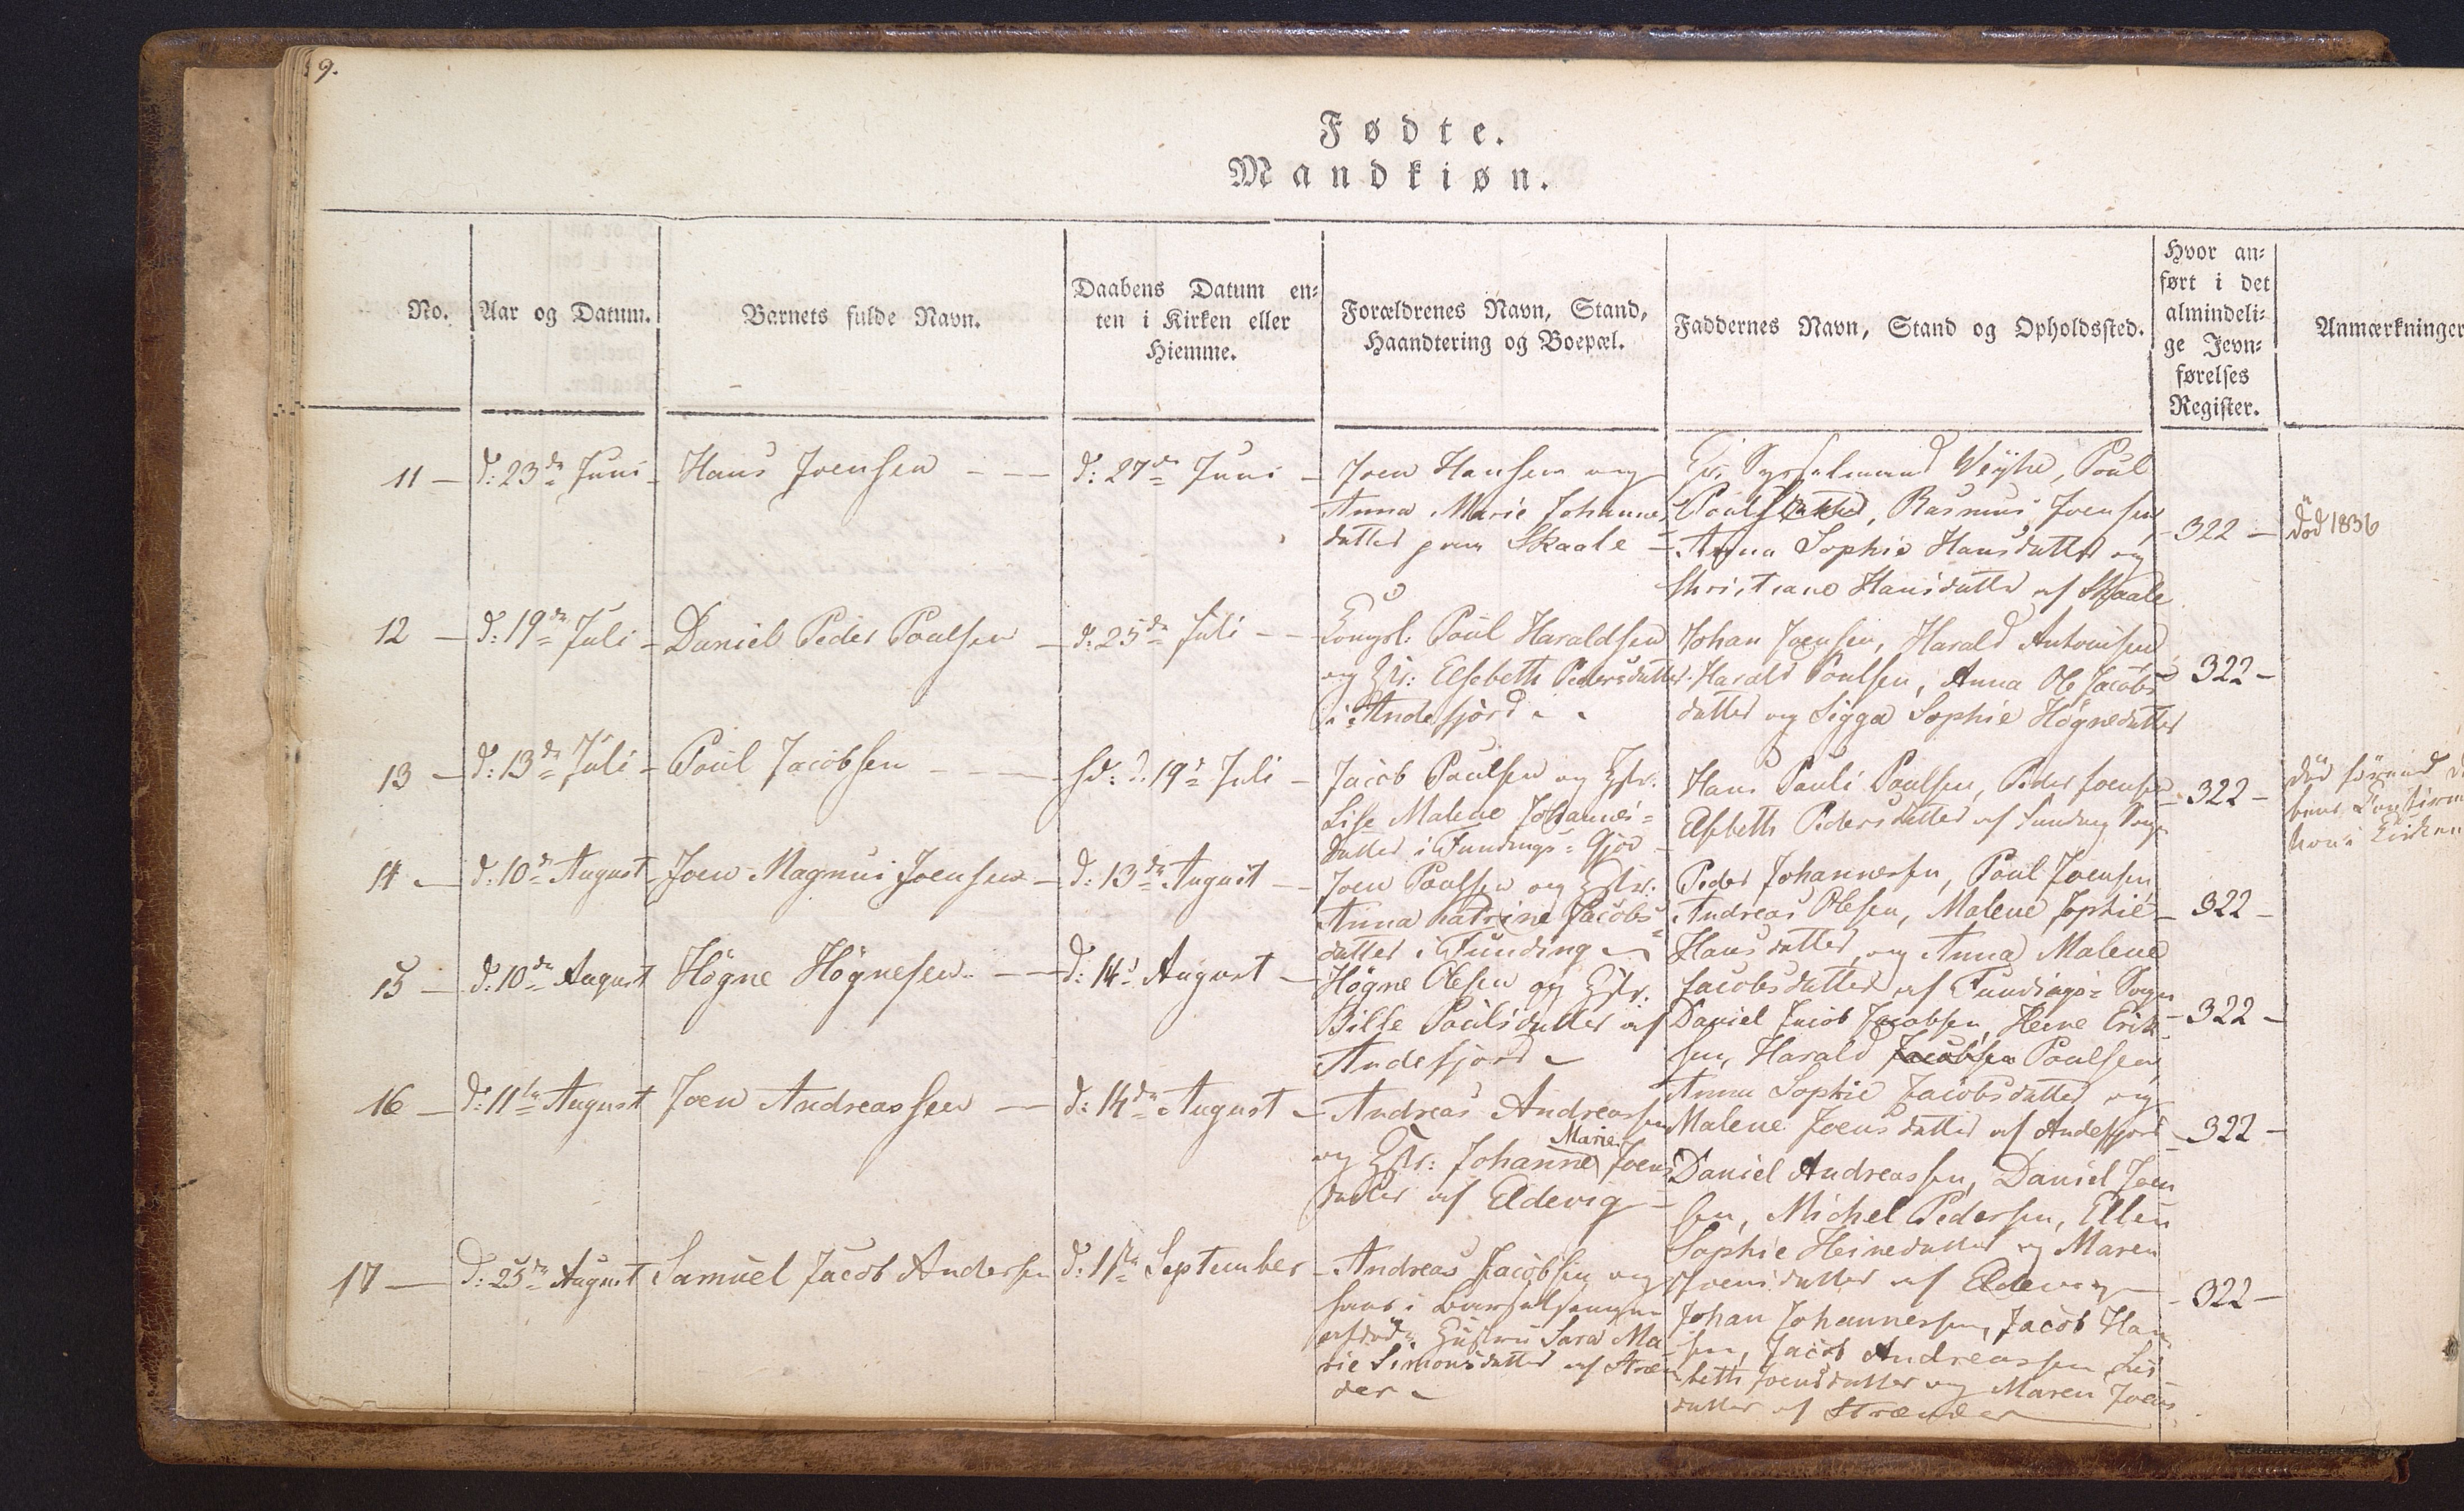 9.
Fødte.
Mandkiøn.
No.
Aar og Datum.
Barnets fulde Navn.
Daabens Datum en-
ten i Kirken eller
Hiemme.
Forældrenes Navn, Stand,
Haandtering og Boepæl.
Faddernes Navn, Stand og Opholdssted.
Hvor an-
ført i det
almindeli-
ge Jevn-
førelses
Register.
Anmærkninger
11 — d: 23de Juni — Hans Joensen — — d: 27de Juni —
Joen Hansen og
Anna Marie Johannes
datter Skaale —
Sysselmand Weyhe, Poul
Rasmus Joensen
Anna Sophie Hansdatter og
Christiane Hansdatter af Skaale
322 —
död 1836
12 — d: 19de Juli — Daniel Peder Poulsen — d: 25de Juli — —
Kongsl: Poul Haraldsen
og Hstr: Elsebeth Pedersdatter
i Andefjord
Johan Joensen, Harald Antonisen
Harald Poulsen, Anna Ole Jacobs
datter og Sigga Sophie Högnedatter
322 —
13 — d: 13de Juli — Poul Jacobsen — — — d: 19d Juli —
Jacob Poulsen og Hstr:
Lise Malene Johannes-
datter i Fundings-Gjov
Hans Pauli Poulsen, Peder Joensen
Elsebeth Pedersdatter af Funding Sogn
322 —
död
14 — d: 10de August — Joen Magnus Joensen — d: 13de August —
Joen Poulsen og Hstr:
Anna Katrine Jacobs-
datter i Funding
Peder Johannesen, Poul Joensen,
Andreas Olesen, Malene Sophie
Hansdatter og Anna Malene
Jacobsdatter af Fundings-Sogn
322 —
15 — d: 10de August Högne Högnesen — — d: 14d August —
Högne Olesen og Hstr:
Bille Poulsdatter af
Andefjord —
Daniel Jacob Jacobsen, Heine Erik-
sen, Harald Jacobsen Poulsen,
Anna Sophie Jacobsdatter og
Malene Joensdatter af Andefjord
322 —
16 — d: 11te August Joen Andreassen — d: 14de August —
Andreas Andreassen
Marie
og Hstr: Johanne Joens
datter af Eldevig —
Daniel Andreassen, Daniel Joen
sen, Michel Pedersen, Ellen
Sophie Heinedatter og Maren
Joensdatter af Eldevig
322 —
17 — d: 25de August Samuel Jacob Andersen d: 1ste September —
Andreas Jacobsen og
hans i Barselsengen
afdöde Hustru Sara Ma
rie Simonsdatter af Stræn
der —
Johan Johannessen, Jacob Han
sen, Jacob Andreassen, Lis
beth Joensdatter og Maren Joens
datter af Strænder
322 —